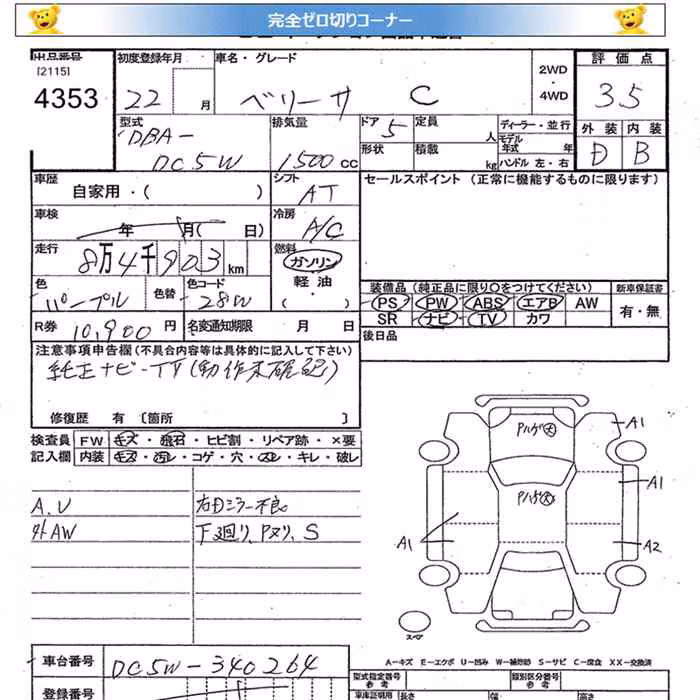 完全ゼロ切りコーナー
出品番号 初度登録年月 車名・グレード 2WD・4WD 評価点
[2115]
4353 22 月 ベリーサ C 35
型式 排気量 ドア 5 定員 人 ディーラー・並行 外装 内装
DBA-DC5W 1500cc 形状 積載 kg モデル年式 年 D B
ハンドル 左・右
車歴 シフト セールスポイント (正常に機能するものに限ります)
自家用・( ) AT
車検 年 月( 日) 冷房 A/C
走行 8万4千903km 燃料 ガソリン
軽油・( )
色 パープル 色替 色コード 28W
装備品 (純正品に限り○をつけてください) 新車保証書
PS PW ABS エアB AW 有・無
SR ナビ TV カワ
R券 10,900円 名変通知期限 月 日 後日品
注意事項申告欄 (不具合内容等は具体的に記入して下さい)
純正ナビ-TV(動作未確認)
修復歴 有 〔箇所 〕
検査員 FW キズ・飛石・ヒビ割・リペア跡・×要
記入欄 内装 キズ・汚レ・コゲ・穴・スレ・キレ・破レ
A.U 右Dミラー不良
外AW 下廻り、Pヌリ、S
Pハゲ大 A1
Pハゲ大 A1
A1 A2
スペア
A-キズ E-エクボ U-凹み W-補修跡 S-サビ C-腐食 XX-交換済
車台番号 DC5W-340264 型式指定番号 参考 類別区分番号 参考
登録番号 車庫証明用 長さ 幅 高さ